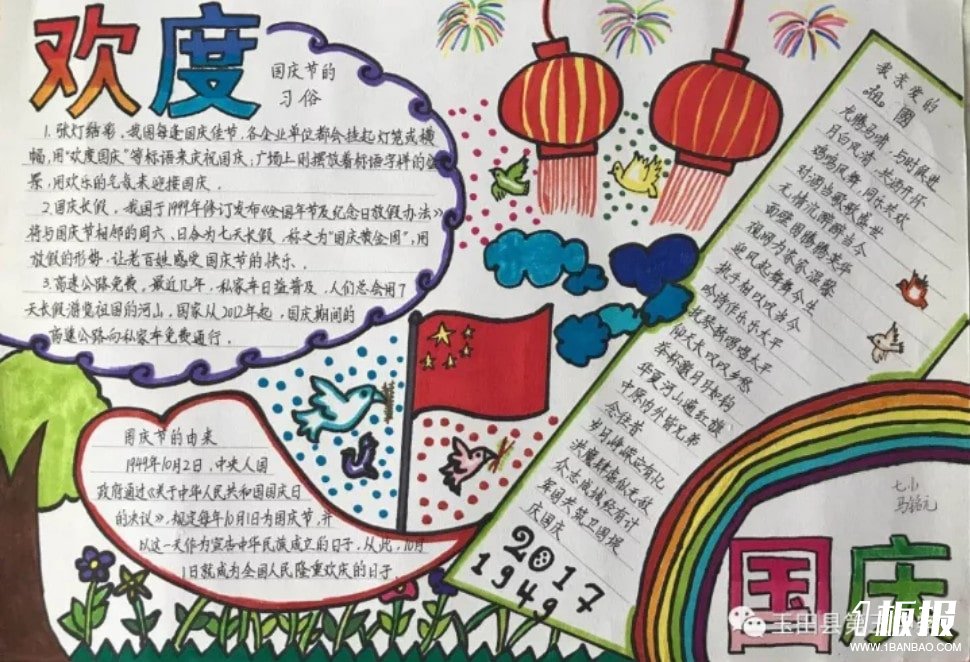 欢度
国庆节的
习俗
1.张灯结彩，我国每逢国庆佳节，各企业单位都会挂起灯笼或横
幅，用“欢度国庆”等标语来庆祝国庆；广场上则摆放着标语字样的
景，用欢乐的气氛来迎接国庆。
2.国庆长假，我国于1999年修订发布《全国年节及纪念日放假办法》
将与国庆节相邻的周六、日合为七天长假，称之为“国庆黄金周”；用
放假的形势，让老百姓感受国庆节的快乐。
3.高速公路免费，最近几年，私家车日益普及，人们总会用7
天长假游览祖国的河山，国家从2012年起，国庆期间的
高速公路向私家车免费通行。
国庆节的由来
1949年10月2日，中央人国
政府通过《关于中华人民共和国国庆日
的决议》，规定每年10月1日为国庆节，并
以这一天作为宣告中华民族成立的日子，从此，10月
1日就成为全国人民隆重欢庆的日子
我亲爱的
祖國
龙腾马啸，与时俱进
月白风清，共语开怀
鸡鸣风舞，同乐共欢
对酒当歌歌盛世
无情沉醉醉当今
面瞻国腾腾荣华
迎风起舞舞今生
执手相以叹当今
吟诗作乐乐太平
俯天长叹叹乡愁
举杯邀月月如钩
华夏河山遍红旗
中原内外皆兄弟
念往昔
众志成城经有计
军国共筑卫国堤
庆国庆
2017
1949
七小
马铭元
国庆
玉田县第
板报
WWW.1BANBAO.COM